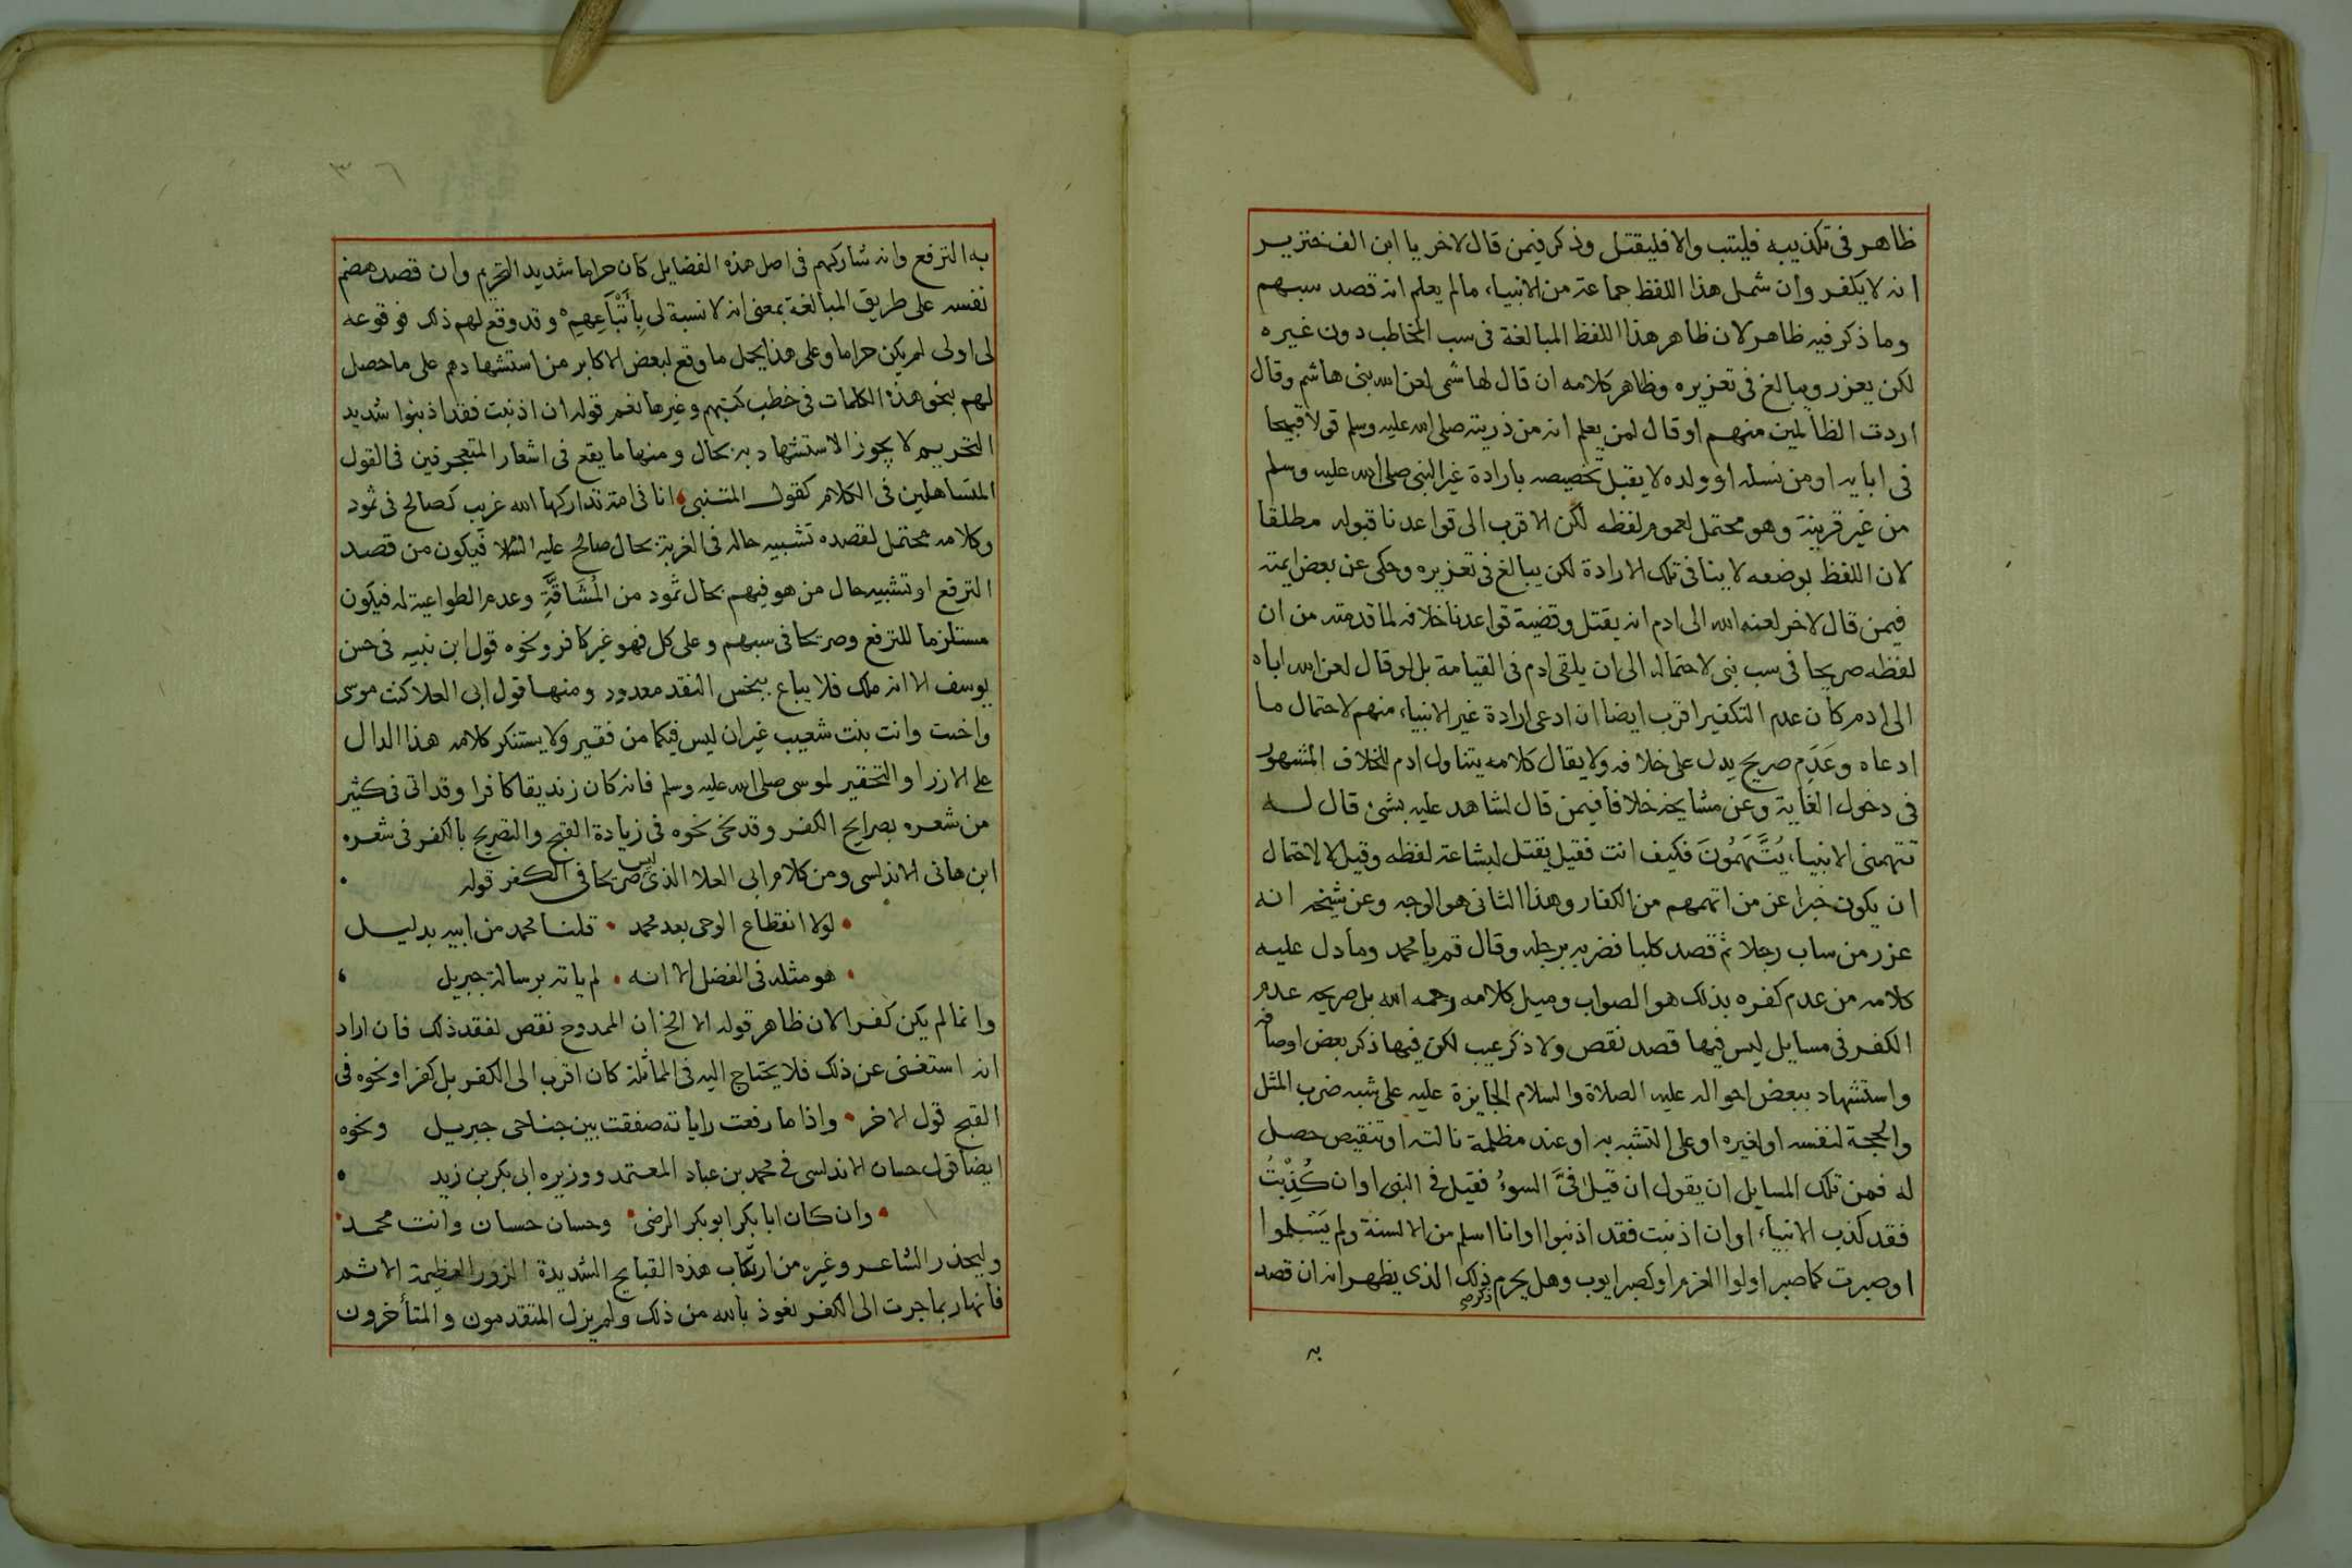 ظاهر في تكذيبه فليتب والا فليقتل وذكر فيمن قال لاخر يا ابن الف خنزير
انه لا يكفر وان شمل هذا اللفظ جماعة من الانبياء، مالم يعلم انه قصد سبهم
وما ذكر فيه ظاهر لان ظاهر هذا اللفظ المبالغة في سب المخاطب دون غيره
لكن يعزر ويبالغ في تعزيره وظاهر كلامه ان قال لهاشمي لعن الله بني هاشم وقال
اردت الظالمين منهم او قال لمن يعلم انه من ذريته صلى الله عليه وسلم قولا قبيحا
في ابايه او من نسله او ولده لا يقبل تخصيصه بارادة غير النبي صلى الله عليه وسلم
من غير قرينة وهو محتمل لعموم لفظه لكن الاقرب الى قواعدنا قبوله مطلقا
لان اللفظ بوضعه لا ينافي تلك الارادة لكن يبالغ في تعزيره وحكى عن بعض ايمته
فيمن قال لاخر لعنه الله الى ادم انه يقتل وقضية قواعدنا خلافه لما قدمته من ان
لفظه صريحا في سب نبي لاحتماله الى ان يلقى ادم في القيامة بل لو قال لعن الله اباه
الى ادم كان عدم التكفير اقرب ايضا ان ادعى ارادة غير الانبياء منهم لاحتمال ما
ادعاه وعَدَم صريح يدل على خلافه ولا يقال كلامه يتناول ادم للخلاف المشهور
في دخول الغاية وعن مشايخه خلافا فيمن قال لشاهد عليه بشئ قال له
تتهمني الانبياء، يُتَّهَمُونَ فكيف انت فقيل يقتل لبشاعة لفظه وقيل لا لاحتمال
ان يكون خبرا عن من اتهمهم من الكفار وهذا الثاني هو الوجه وعن شيخه انه
عزر من ساب رجلا ثم قصد كلبا فضربه برجله وقال قم يا محمد وما دل عليه
كلامه من عدم كفره بذلك هو الصواب وميل كلامه رحمه الله بل صريحه عدم
الكفر في مسايل ليس فيها قصد نقص ولا ذكر عيب لكن فيها ذكر بعض اوصافه
واستشهاد ببعض احواله عليه الصلاة والسلام الجايزة عليه على شبه ضرب المثل
والحجة لنفسه او لغيره او على التشبه به او عند مظلمة نالته او تنقيص حصل
له فمن تلك المسايل ان يقول ان قيل فيَّ السوءُ فقيل في النبي او ان كُذِّبْتُ
فقد كذب الانبياء او ان اذنبت فقد اذنبوا او انا اسلم من الالسنة ولم يَسْلموا
او صبرت كما صبر اولوا العزم او كصبر ايوب وهل يحرم ذلك الذي يظهر انه ان قصد
ذكر صح
به
٣٦
به الترفع وانه شاركهم في اصل هذه الفضايل كان حراما شديد التحريم وان قصد هضم
نفسه على طريق المبالغة بمعنى انه لا نسبة لي بِأَتْبَاعِهِمِ وقد وقع لهم ذلك فوقوعه
لي اولى لم يكن حراما وعلى هذا يحمل ما وقع لبعض الاكابر من استشهادهم على ما حصل
لهم بنحو هذه الكلمات في خطب كتبهم وغيرها نعم قوله ان اذنبت فقد اذنبوا شديد
التحريم لا يجوز الاستشهاد به بحال ومنها ما يقع في اشعار المتعجرفين في القول
المتساهلين في الكلام كقول المتنبي انا في امة تداركها الله غريب كصالح في ثمود
وكلامه محتمل لقصده تشبيه حاله في الغربة بحال صالح عليه السلا فيكون من قصد
الترفع او تشبيه حال من هو فيهم بحال ثمود من المُشَاقَّةِ وعدم الطواعية له فيكون
مستلزما للترفع وصريحا في سبهم وعلى كل فهو غير كافر ونحوه قول ابن نبيه في حسن
يوسف الا انه ملك فلا يباع ببخس النقد معدود ومنها قول ابي العلا كنت موسى
واخت وانت بنت شعيب غير ان ليس فيكما من فقير ولا يستنكر كلامه هذا الدال
على الازرا والتحقير لموسى صلى الله عليه وسلم فانه كان زنديقا كافرا وقد اتى في كثير
من شعره بصرايح الكفر وقد نحى نحوه في زيادة القبح والتصريح بالكفر في شعره
ابن هاني الاندلسي ومن كلام ابي العلا الذي ليس صريحا في الكفر قوله
لولا انقطاع الوحي بعد محمد • قلنا محمد من ابيه بديل
هو مثله في الفضل الا انه • لم ياته برسالة جبريل
وانما لم يكن كفرا لان ظاهر قوله الا الخ ان الممدوح نقص لفقد ذلك فان اراد
انه استغنى عن ذلك فلا يحتاج اليه في المماثلة كان اقرب الى الكفر بل كفرا ونحوه في
القبح قول الاخر • واذا ما رفعت راياته صفقت بين جناحي جبريل ونحوه
ايضا قول حسان الاندلسي في محمد بن عباد المعتمد ووزيره ابي بكر بن زيد
وان كان ابا بكر ابو بكر الرضى • وحسان حسان وانت محمد
وليحذر الشاعر وغيره من ارتكاب هذه القبايح الشديدة الزور العظيمة الاثم
فانها ربما جرت الى الكفر نعوذ بالله من ذلك ولم يزل المتقدمون والمتأخرون